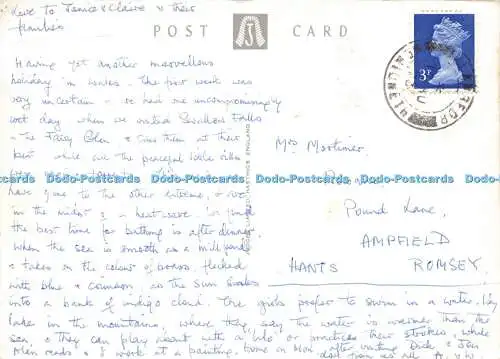 Love to Janice & Claire & their
families
POST CARD
3P
Having yet another marvellous
holiday in Wales. The first week was
very uncertain - we had one uncompromisingly
wet day when we visited Swallow Falls
& the Fairy Glen & saw them at their
best while
the peaceful
Dodo-Postcards Dodo-Postcards Dodo-Postcards Dodo-Postcards Dodo-Postcards Dodo-Postcards
have gone to the other extreme, & are
in the midst of a heat wave. We find
the best time for bathing is after dinner
when the sea is smooth as a mill pond
& takes on the colour of brass, flecked
with blue & crimson, as the sun sinks
into a bank of indigo cloud. The girls prefer to swim in a water-lily
lake in the mountains, where they say the water is warmer than the
sea, & they can play about with a lilo or practise their strokes, while
Alan reads & I work at a painting. Home on Mon after visiting Dick & Jen
Mrs Mortimer
Pound Lane,
AMPFIELD
HANTS ROMSEY.